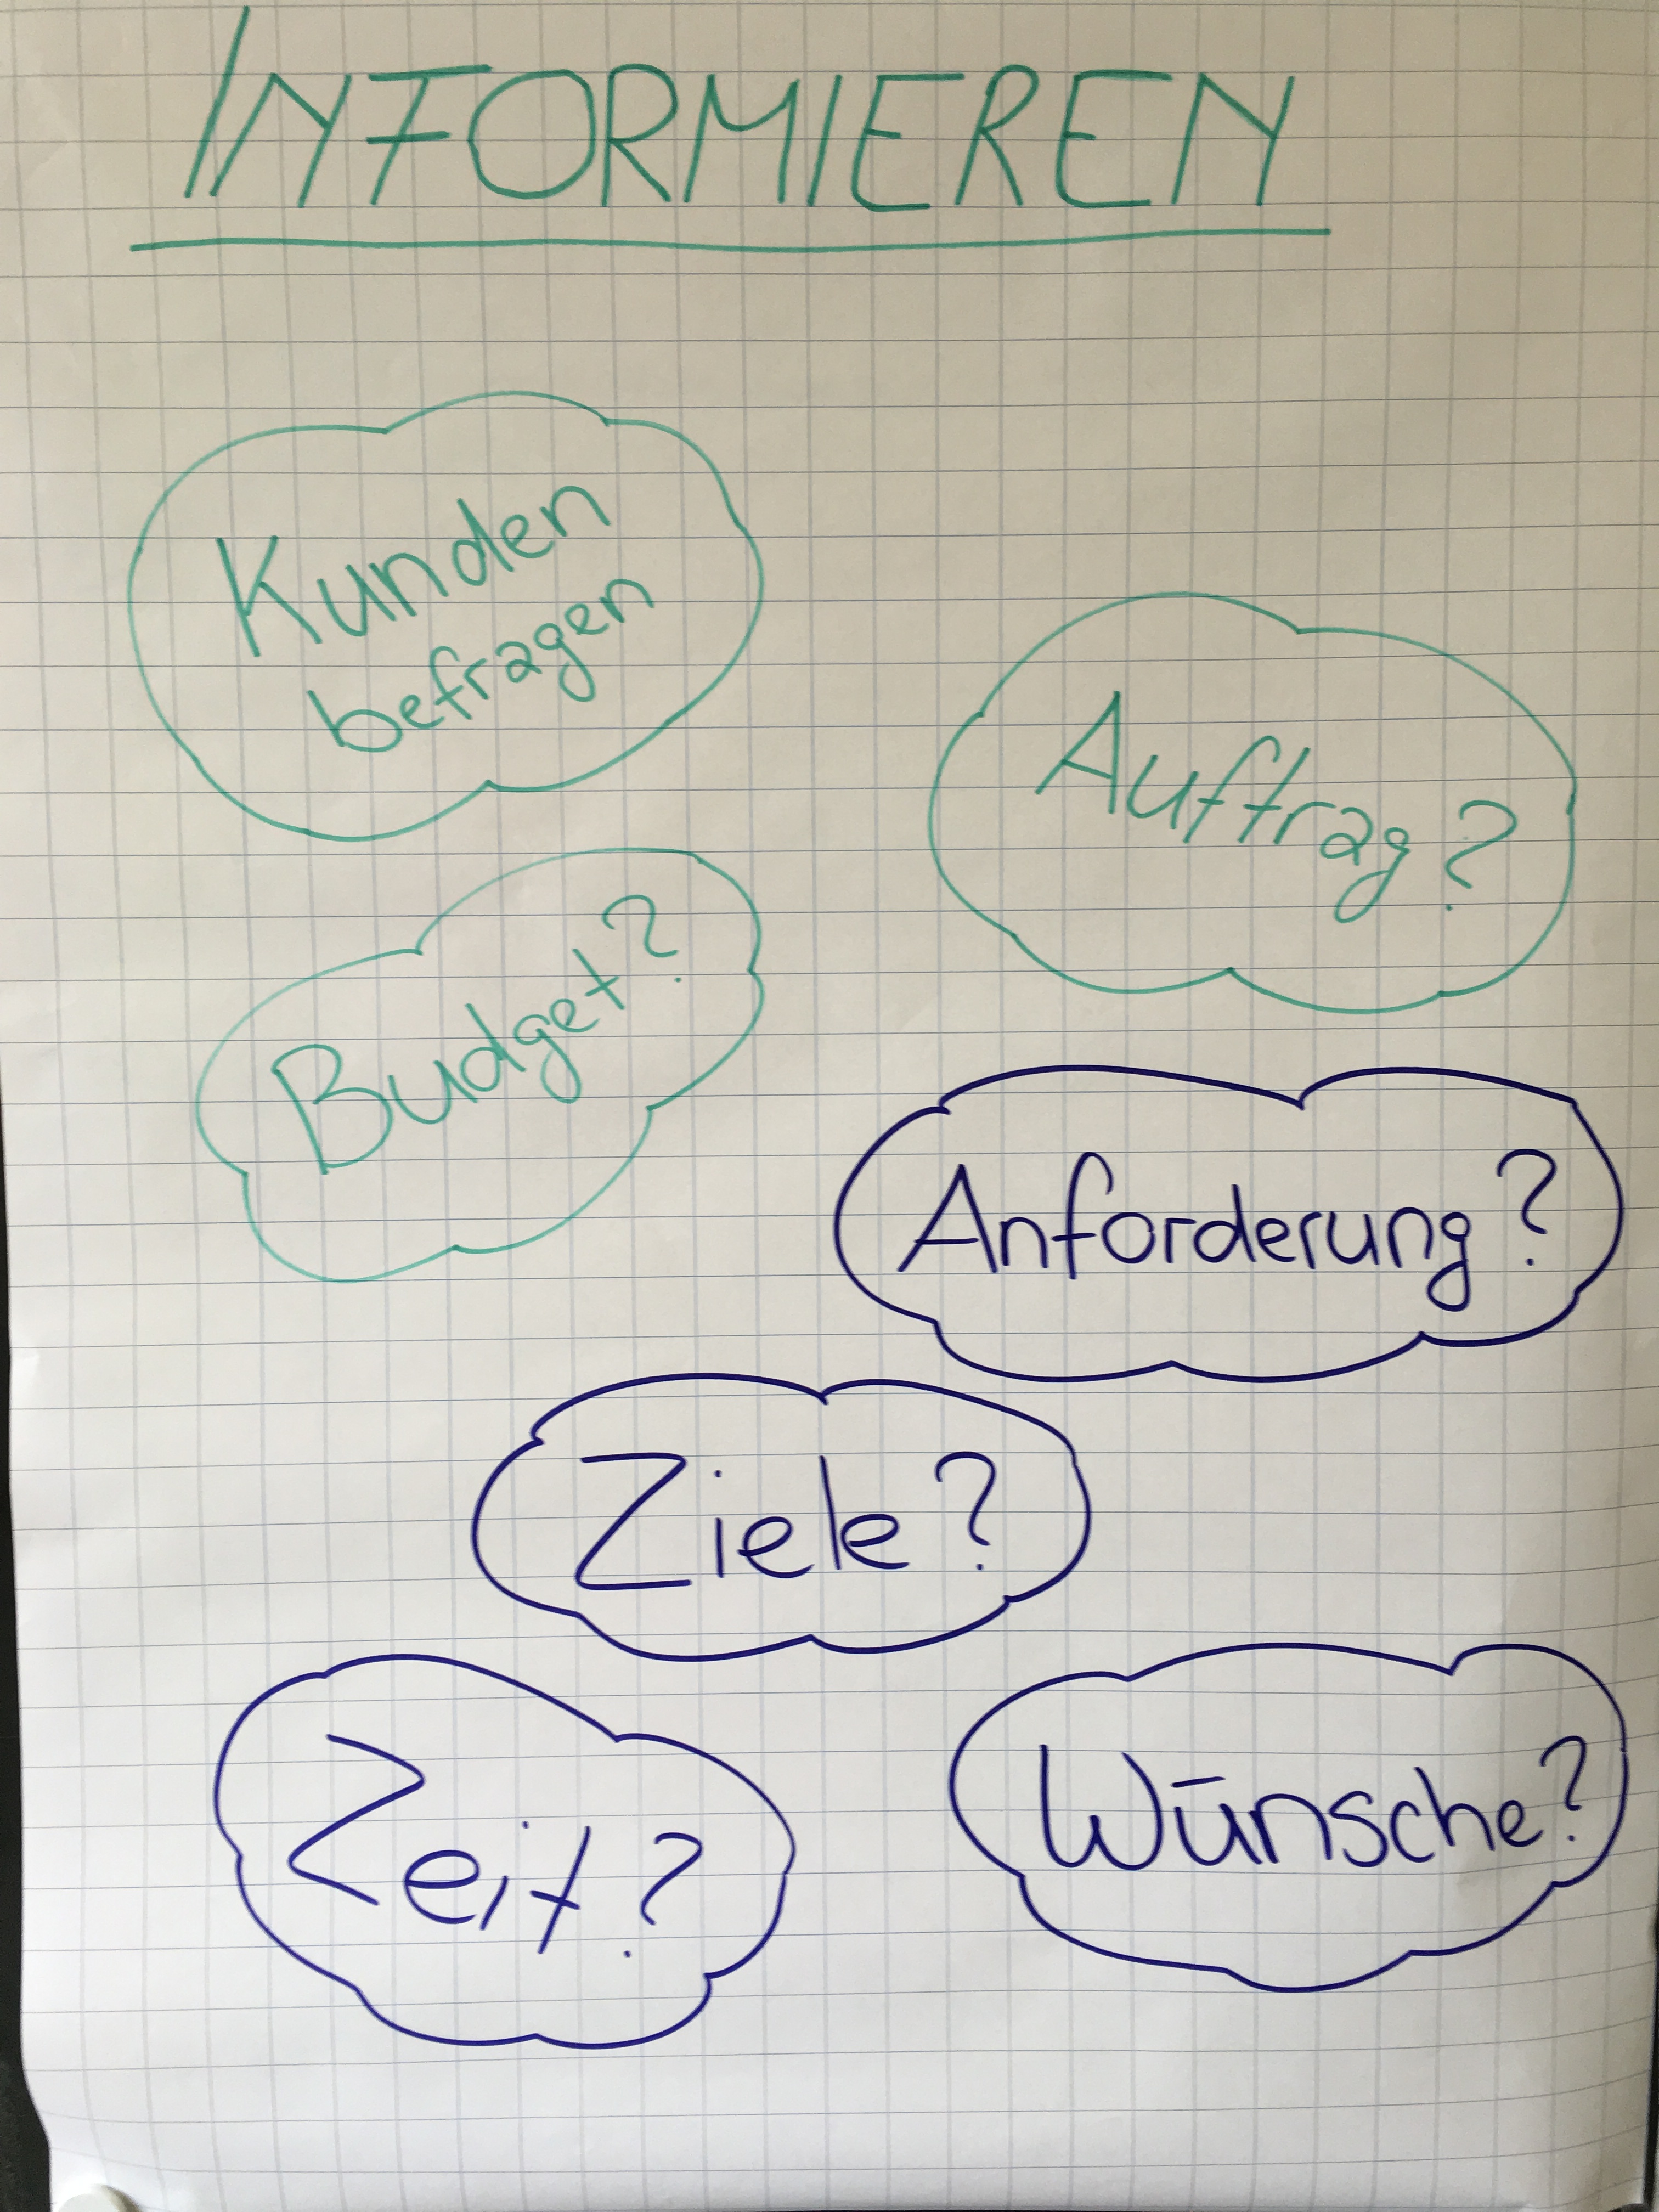 INFORMIEREN
Kunden
befragen
Auftrag?
Budget?
Anforderung?
Ziele?
Zeit?
Wünsche?